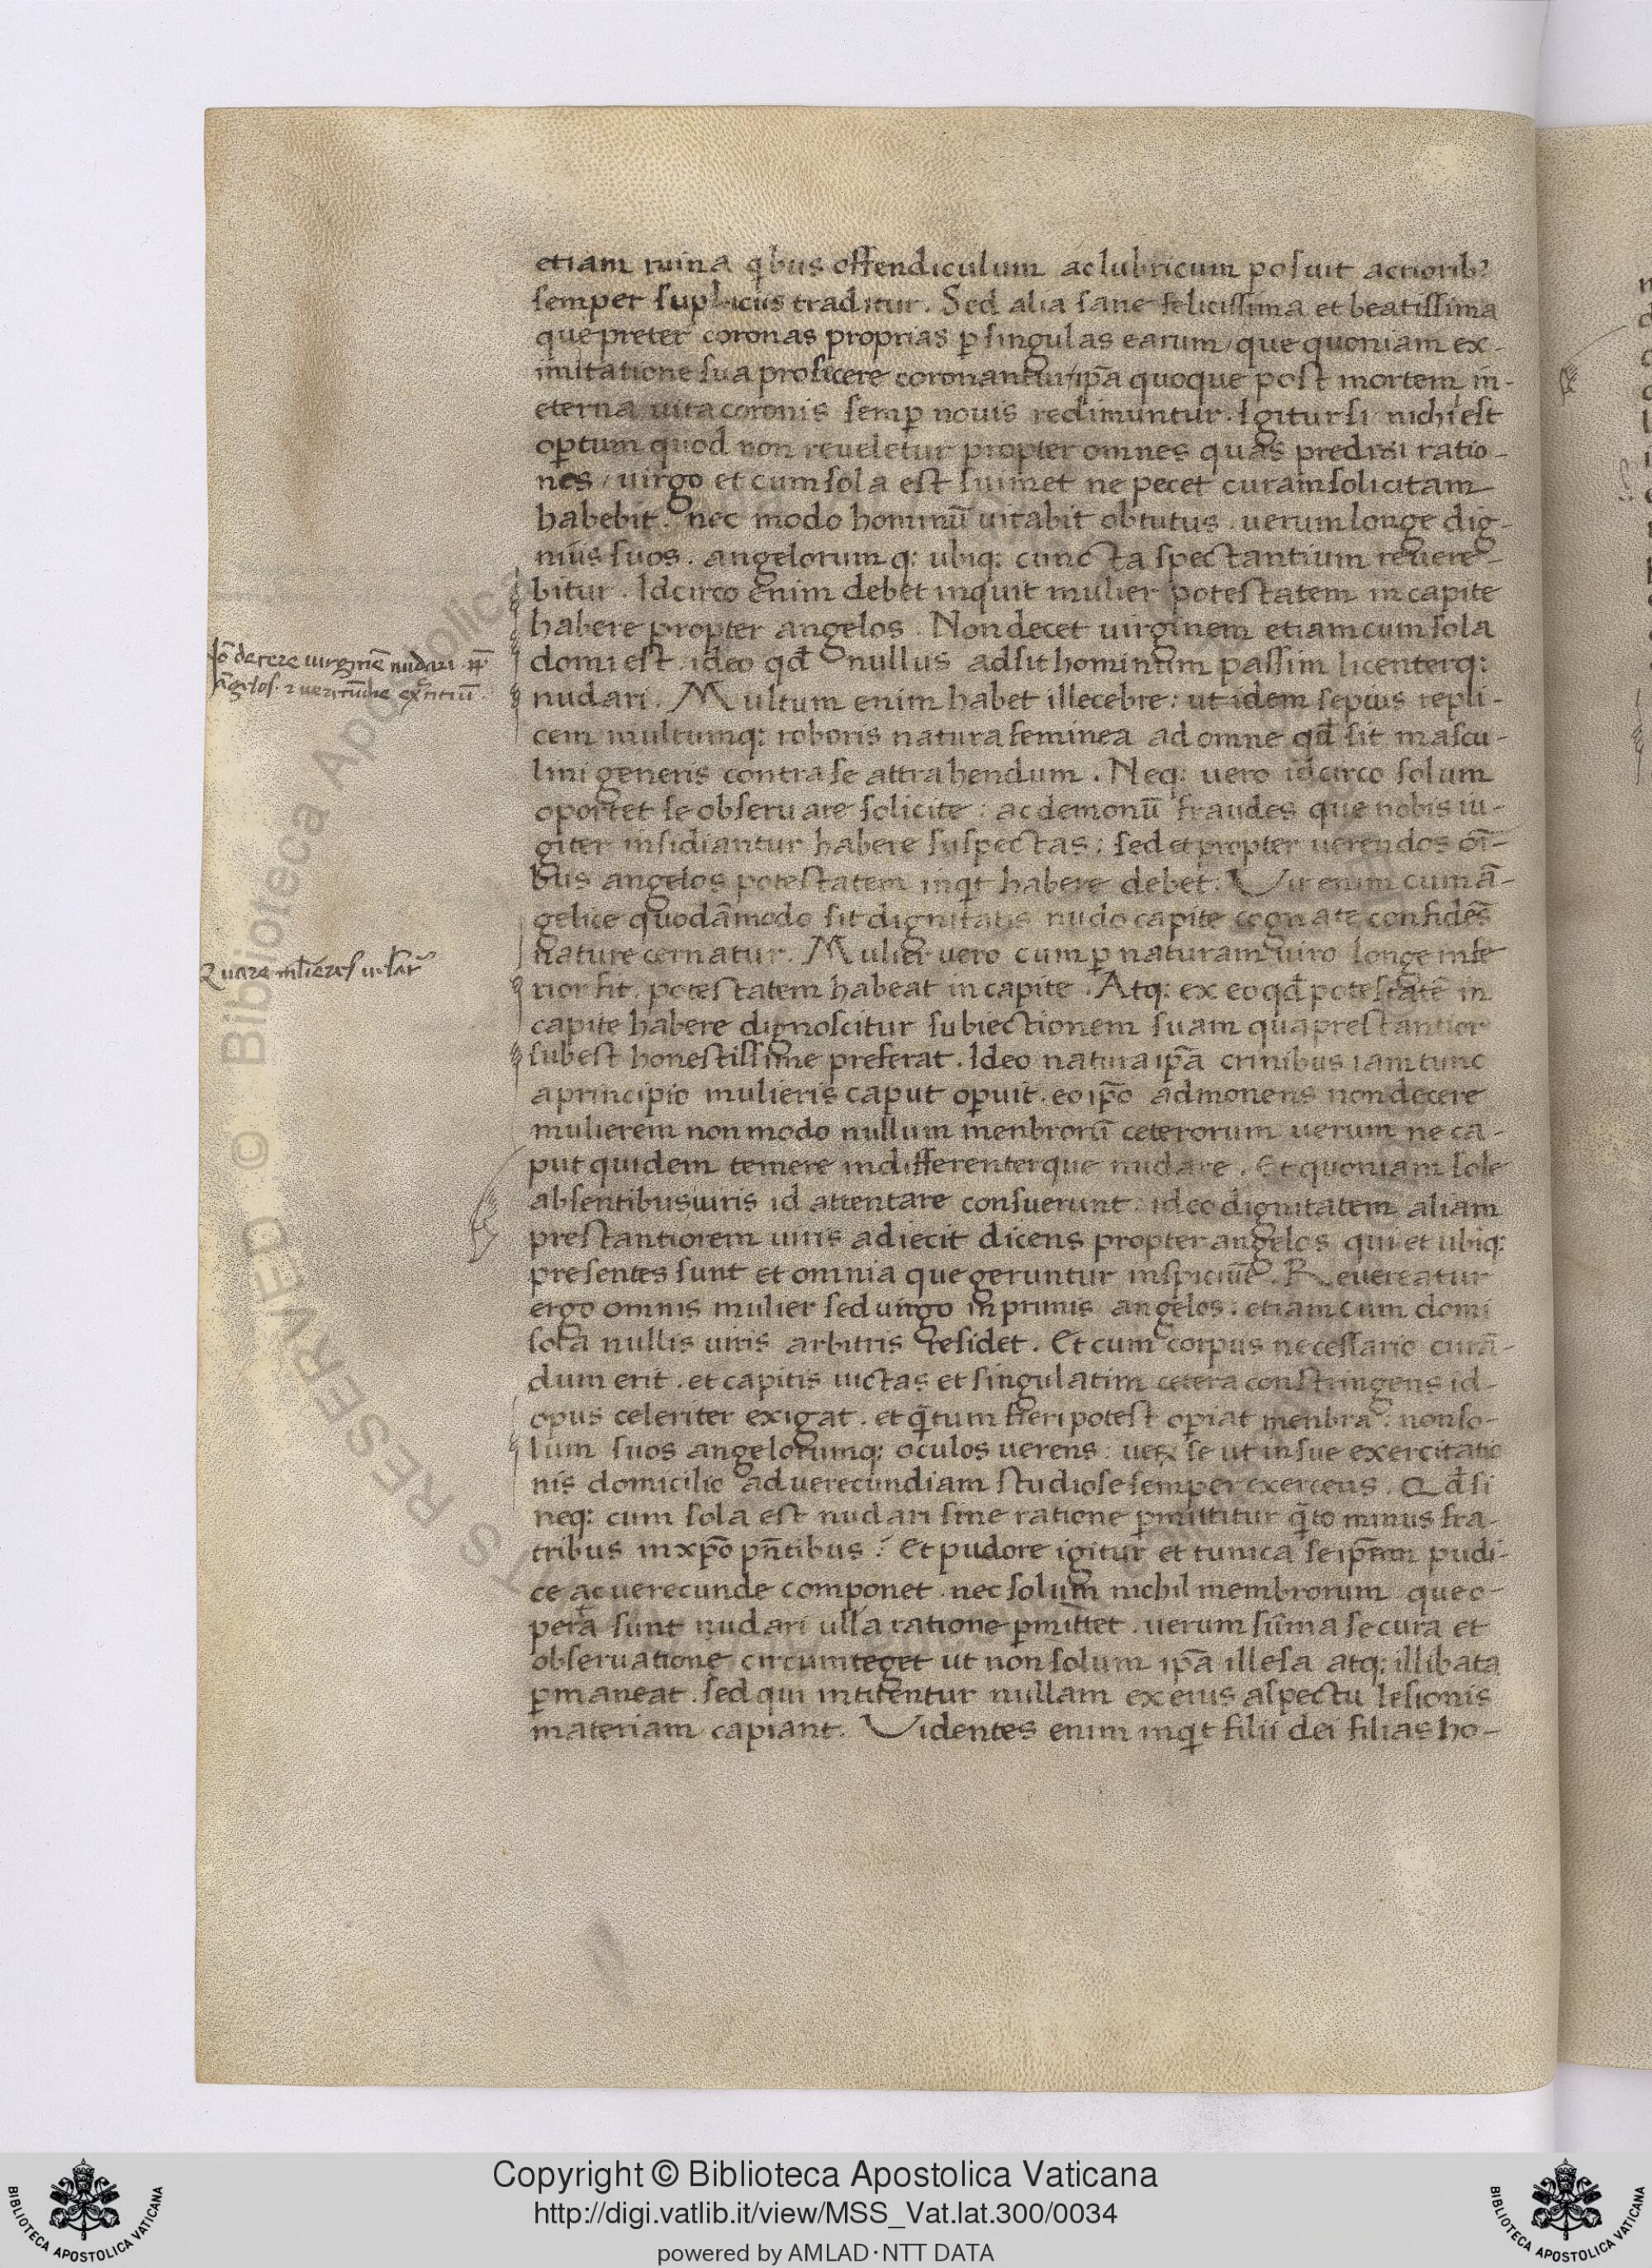 etiam ruina qbus offendiculum ac lubricum posuit acriorib?
semper supliciis traditur. Sed alia sane felicissima et beatissima
que preter coronas proprias p singulas earum / que quoniam ex-
imitatione sua proficere coronantur / ip̄a quoque post mortem in-
eterna uita coronis semp nouis redimuntur. Igitur si nichil est
optum quod non reueletur propter omnes quas predixi ratio-
nes / uirgo et cum sola est suimet ne pecet curam solicitam
habebit. nec modo hominū uitabit obtutus. uerum longe dig-
nius suos. angelorumq: ubiq: cuncta spectantium reuere-
bitur. Idcirco enim debet inquit mulier potestatem in capite
habere propter angelos. Non decet uirginem etiam cum sola
domi est. ideo qd̄ nullus adsit hominum passim licenterq:
nudari. Multum enim habet illecebre: ut idem sepius repli-
cem multumq: roboris natura feminea ad omne qd̄ sit mascu-
lini generis contra se attrahendum. Neq: uero idcirco solum
oportet se obseruare solicite: ac demonū fraudes que nobis iu-
giter insidiantur habere suspectas: sed et propter uerendos oī-
bus angelos potestatem inqt habere debet. Vir enim cum ā-
gelice quodāmodo sit dignitatis nudo capite cognate confidēs
nature cernatur. Mulier uero cum p naturam uiro longe infe
rior sit. potestatem habeat in capite. Atq: ex eo qd̄ potestatē in
capite habere dignoscitur subiectionem suam qua prestantior
subest honestissime preferat. Ideo natura ip̄a crinibus iam tunc
a principio mulieris caput opuit. eo ip̄o admonens non decere
mulierem non modo nullum menbrorū ceterorum uerum ne ca-
put quidem temere indifferenterque nudare. Et quoniam sole
absentibus uiris id attentare consuerunt: ideo dignitatem aliam
prestantiorem uiris adiecit dicens propter angelos qui et ubiq:
presentes sunt et omnia que geruntur inspiciūt. Reuereatur
ergo omnis mulier sed uirgo inprimis angelos: etiam cum domi
sola nullis uiris arbitris residet. Et cum corpus necessario curā-
dum erit. et capitis uictas et singulatim cetera constringens id
opus celeriter exigat. et q̄tum fieri potest opiat menbra: non so-
lum suos angelorumq: oculos uerens: se ut in sue exercitatio
nis domicilio ad uerecundiam studiose semper exercens. Qd̄ si
neq: cum sola est nudari sine ratione pmittitur q̄to minus fra-
tribus in xp̄o pn̄tibus? Et pudore igitur et tunica se pudi-
ce ac uerecunde componet. nec solum nichil membrorum que o-
perta sunt nudari ulla ratione pmittet. uerum sūma se cura et
obseruatione circumteget ut non solum ip̄a illesa atq: illibata
pmaneat. sed qui intuentur nullam ex eius aspectu lesionis
materiam capiant. Videntes enim inqt filii dei filias ho-
nō decere uirginē nudari
Quare
Copyright © Biblioteca Apostolica Vaticana
http://digi.vatlib.it/view/MSS_Vat.lat.300/0034
powered by AMLAD·NTT DATA
BIBLIOTECA APOSTOLICA VATICANA
BIBLIOTECA APOSTOLICA VATICANA